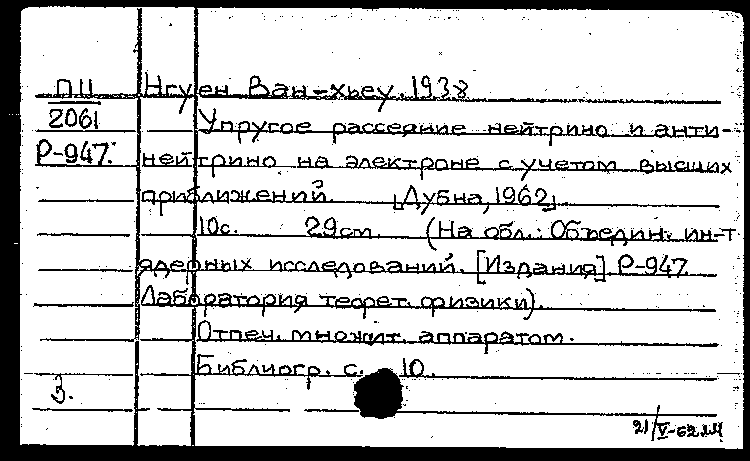 ПЦ Нгуен Ван-хьеу. 1938
2061 Упругое рассеяние нейтрино и анти-
Р-947. нейтрино на электроне с учетом высших
приближений. [Дубна, 1962].
10с. 29см. (На обл.: Объедин. ин-т
ядерных исследований. [Издания]. Р-947
Лаборатория теорет. физики).
Отпеч. множит. аппаратом.
Библиогр. с. 10.
3.
21/V-62